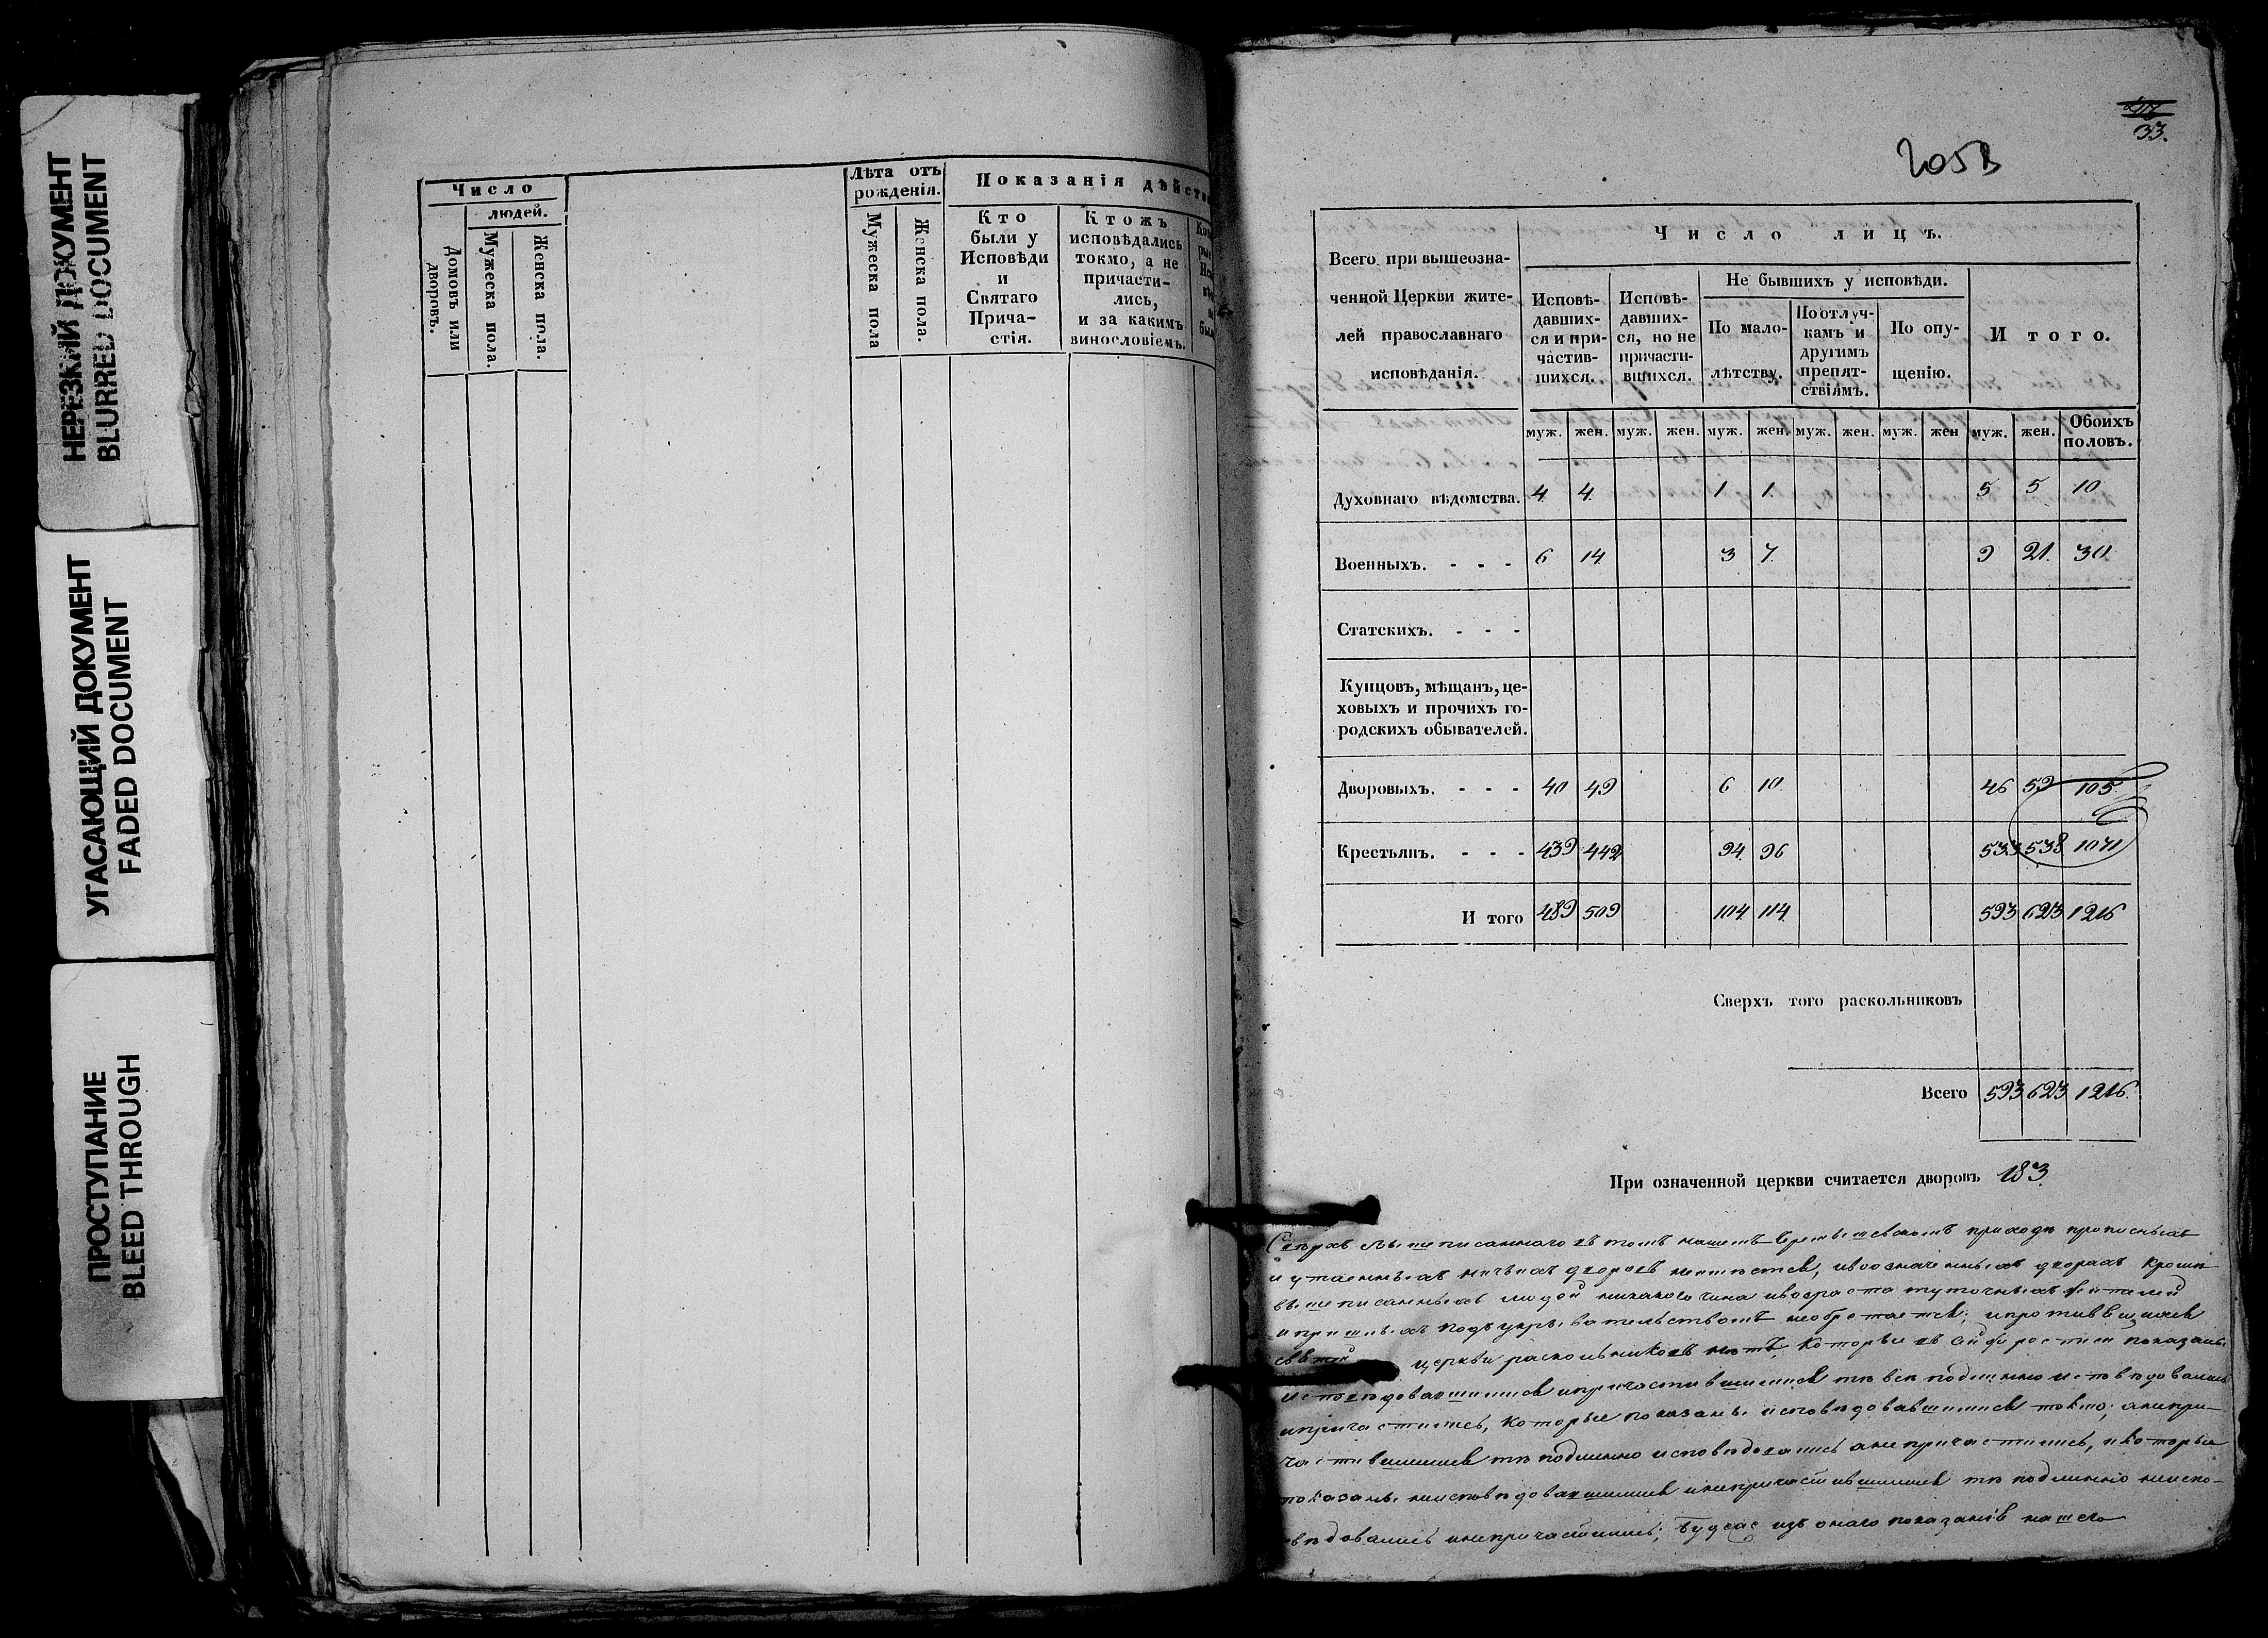 НЕРЕЗКИЙ ДОКУМЕНТ
BLURRED DOCUMENT
УГАСАЮЩИЙ ДОКУМЕНТ
FADED DOCUMENT
ПРОСТУПАНИЕ
BLEED THROUGH
Число
людей.
Домовъ или дворовъ.
Мужеска пола.
Женска пола.
Лѣта отъ
рожденія.
Мужеска пола
Женска пола.
Показанія дѣйств
Кто
были у
Исповѣди
и
Святаго
Прича-
стія.
Ктожъ
исповѣдались
токмо, а не
причасти-
лись,
и за какимъ
винословіемъ.
33.
Всего при вышеозна-
ченной Церкви жите-
лей православнаго
исповѣданія.
Число лицъ.
Исповѣ-
давших-
ся и при-
частив-
шихся.
Исповѣ-
давших-
ся, но не
причасти-
вшихся.
Не бывшихъ у исповѣди.
По мало-
лѣтству.
По отлуч-
камъ и
другимъ
препят-
ствіямъ.
По опу-
щенію.
Итого.
муж. жен. муж. жен. муж. жен. муж. жен. муж. жен муж. жен. Обоихъ
половъ.
Духовнаго вѣдомства. 4 4 1 1 5 5 10
Военныхъ. - - - 6 14 3 7 9 21 30
Статскихъ. - - -
Купцовъ, мѣщанъ, це-
ховыхъ и прочихъ го-
родскихъ обывателей.
Дворовыхъ. - - - 40 49 6 10 46 59 105
Крестьянъ. - - - 439 442 94 96 533 538 1071
И того 489 509 104 114 593 623 1216
Сверхъ того раскольниковъ
Всего 593 623 1216
При означенной церкви считается дворовъ 183
вышеписаннаго въ томъ нашемъ приходѣ прописныхъ
и утаенныхъ ничьихъ дворовъ неимѣется, ивоозначенныхъ дворахъ кромѣ
вышеписанныхъ людей никакого чина ивозраста туточныхъ жителей
ипришлыхъ подъ укрывательствомъ необретается; ипротивящихся
церкви раскольниковъ нѣтъ, Которые въ сей росписи показаны
исповѣдовавшимися ипричастившимися тѣ всѣ подлинно исповѣдовались
ипричастились, которые показаны исповѣдовавшимися токмо, анепри-
частившимися тѣ подлинно исповѣдовались анепричастились, икоторые
показаны неисповѣдовавшимися инепричастившимися тѣ подлинно неиспо-
вѣдовались инепричастились; Будеже изъ онаго показанія нашего